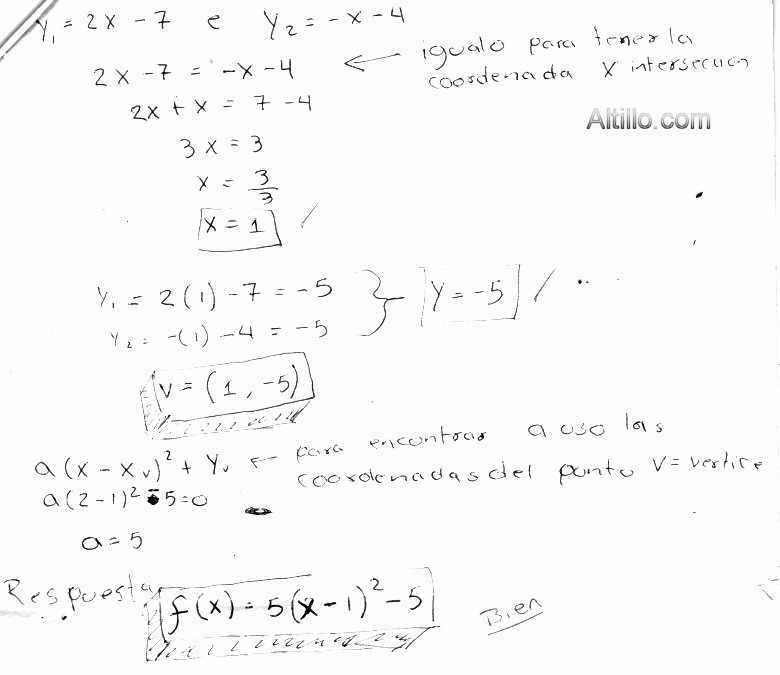 Y₁ = 2x - 7 e Y₂ = -x - 4
2x - 7 = -x - 4 ← igualo para tener la
coordenada x intersección
2x + x = 7 - 4
Altillo.com
3x = 3
x = 3/3
x = 1 /
Y₁ = 2(1) - 7 = -5 } Y = -5 /
Y₂ = -(1) - 4 = -5
V = (1, -5)
a(x - xᵥ)² + Yᵥ ← para encontrar a uso las
coordenadas del punto V = vertice
a(2-1)² - 5 = 0
a = 5
Respuesta
f(x) = 5(x-1)² - 5
Bien